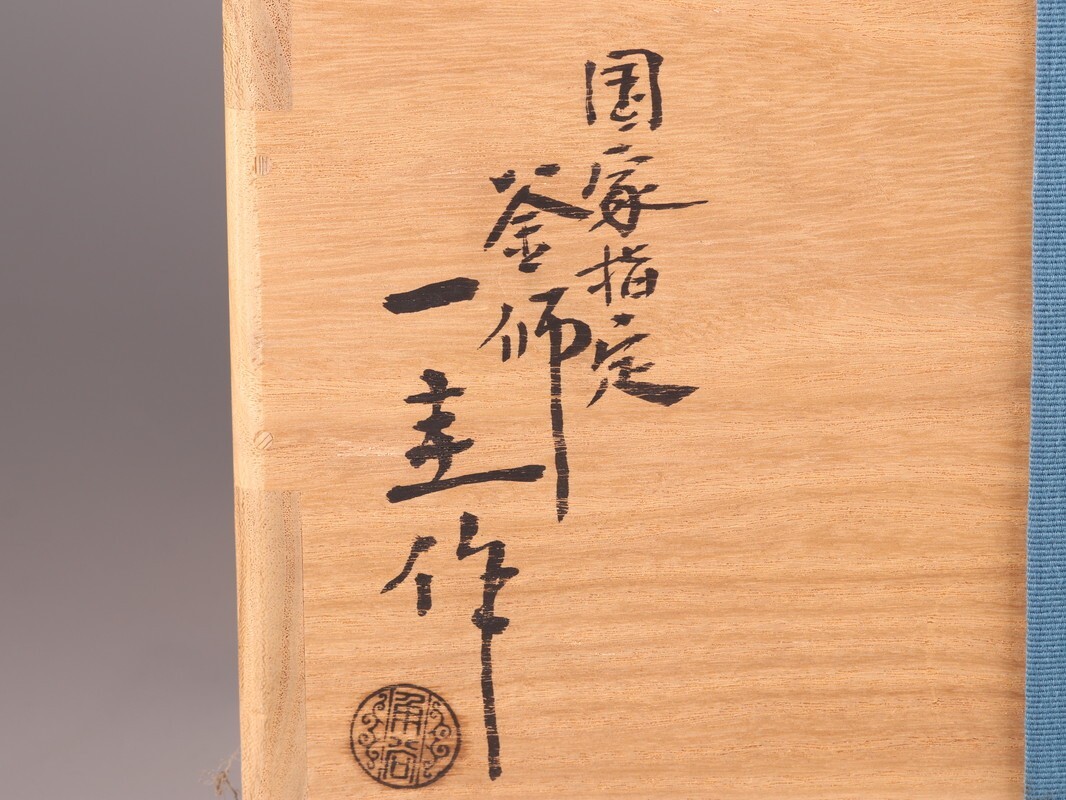 国家指定
釜師
一圭作
角谷